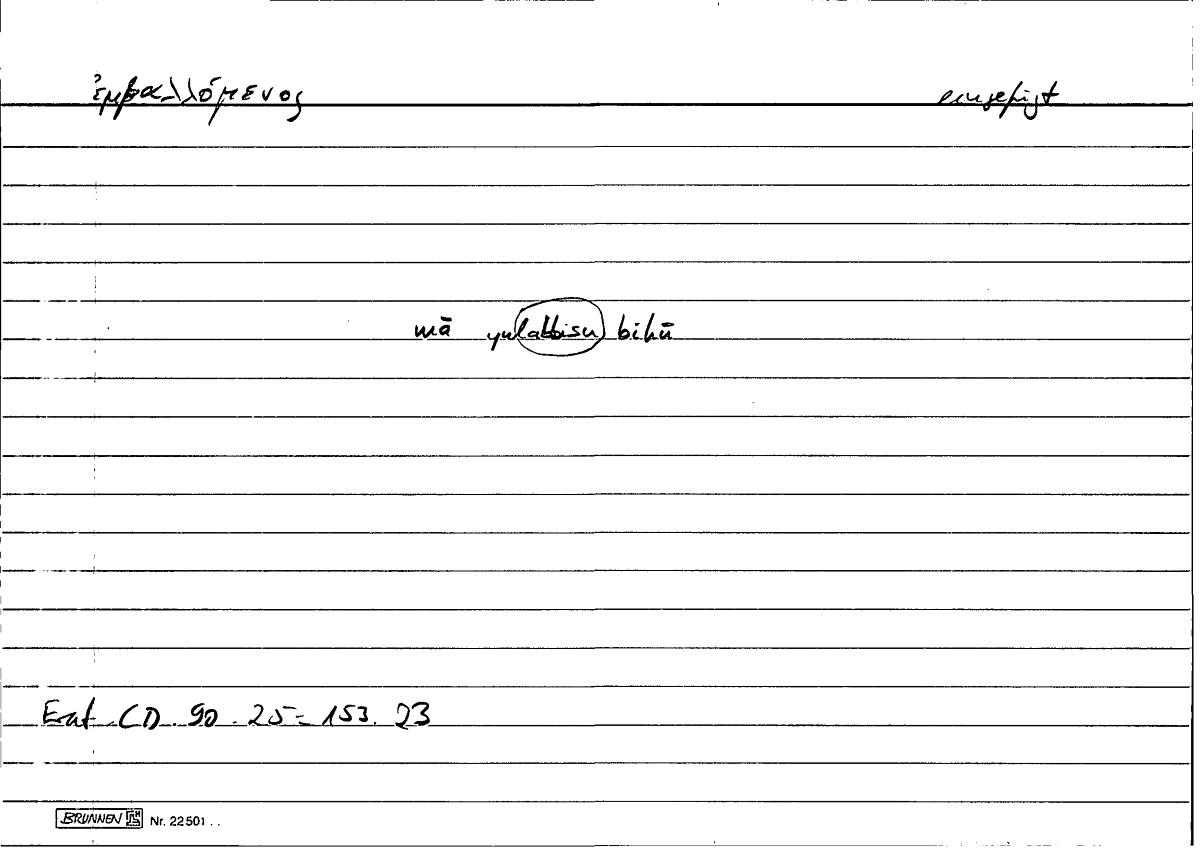 ἐμβαλλόμενος eingefügt
mā yulabbisu bihū
Erat. CD. 90. 25 = 153. 23
BRUNNEN Nr. 22501 . .